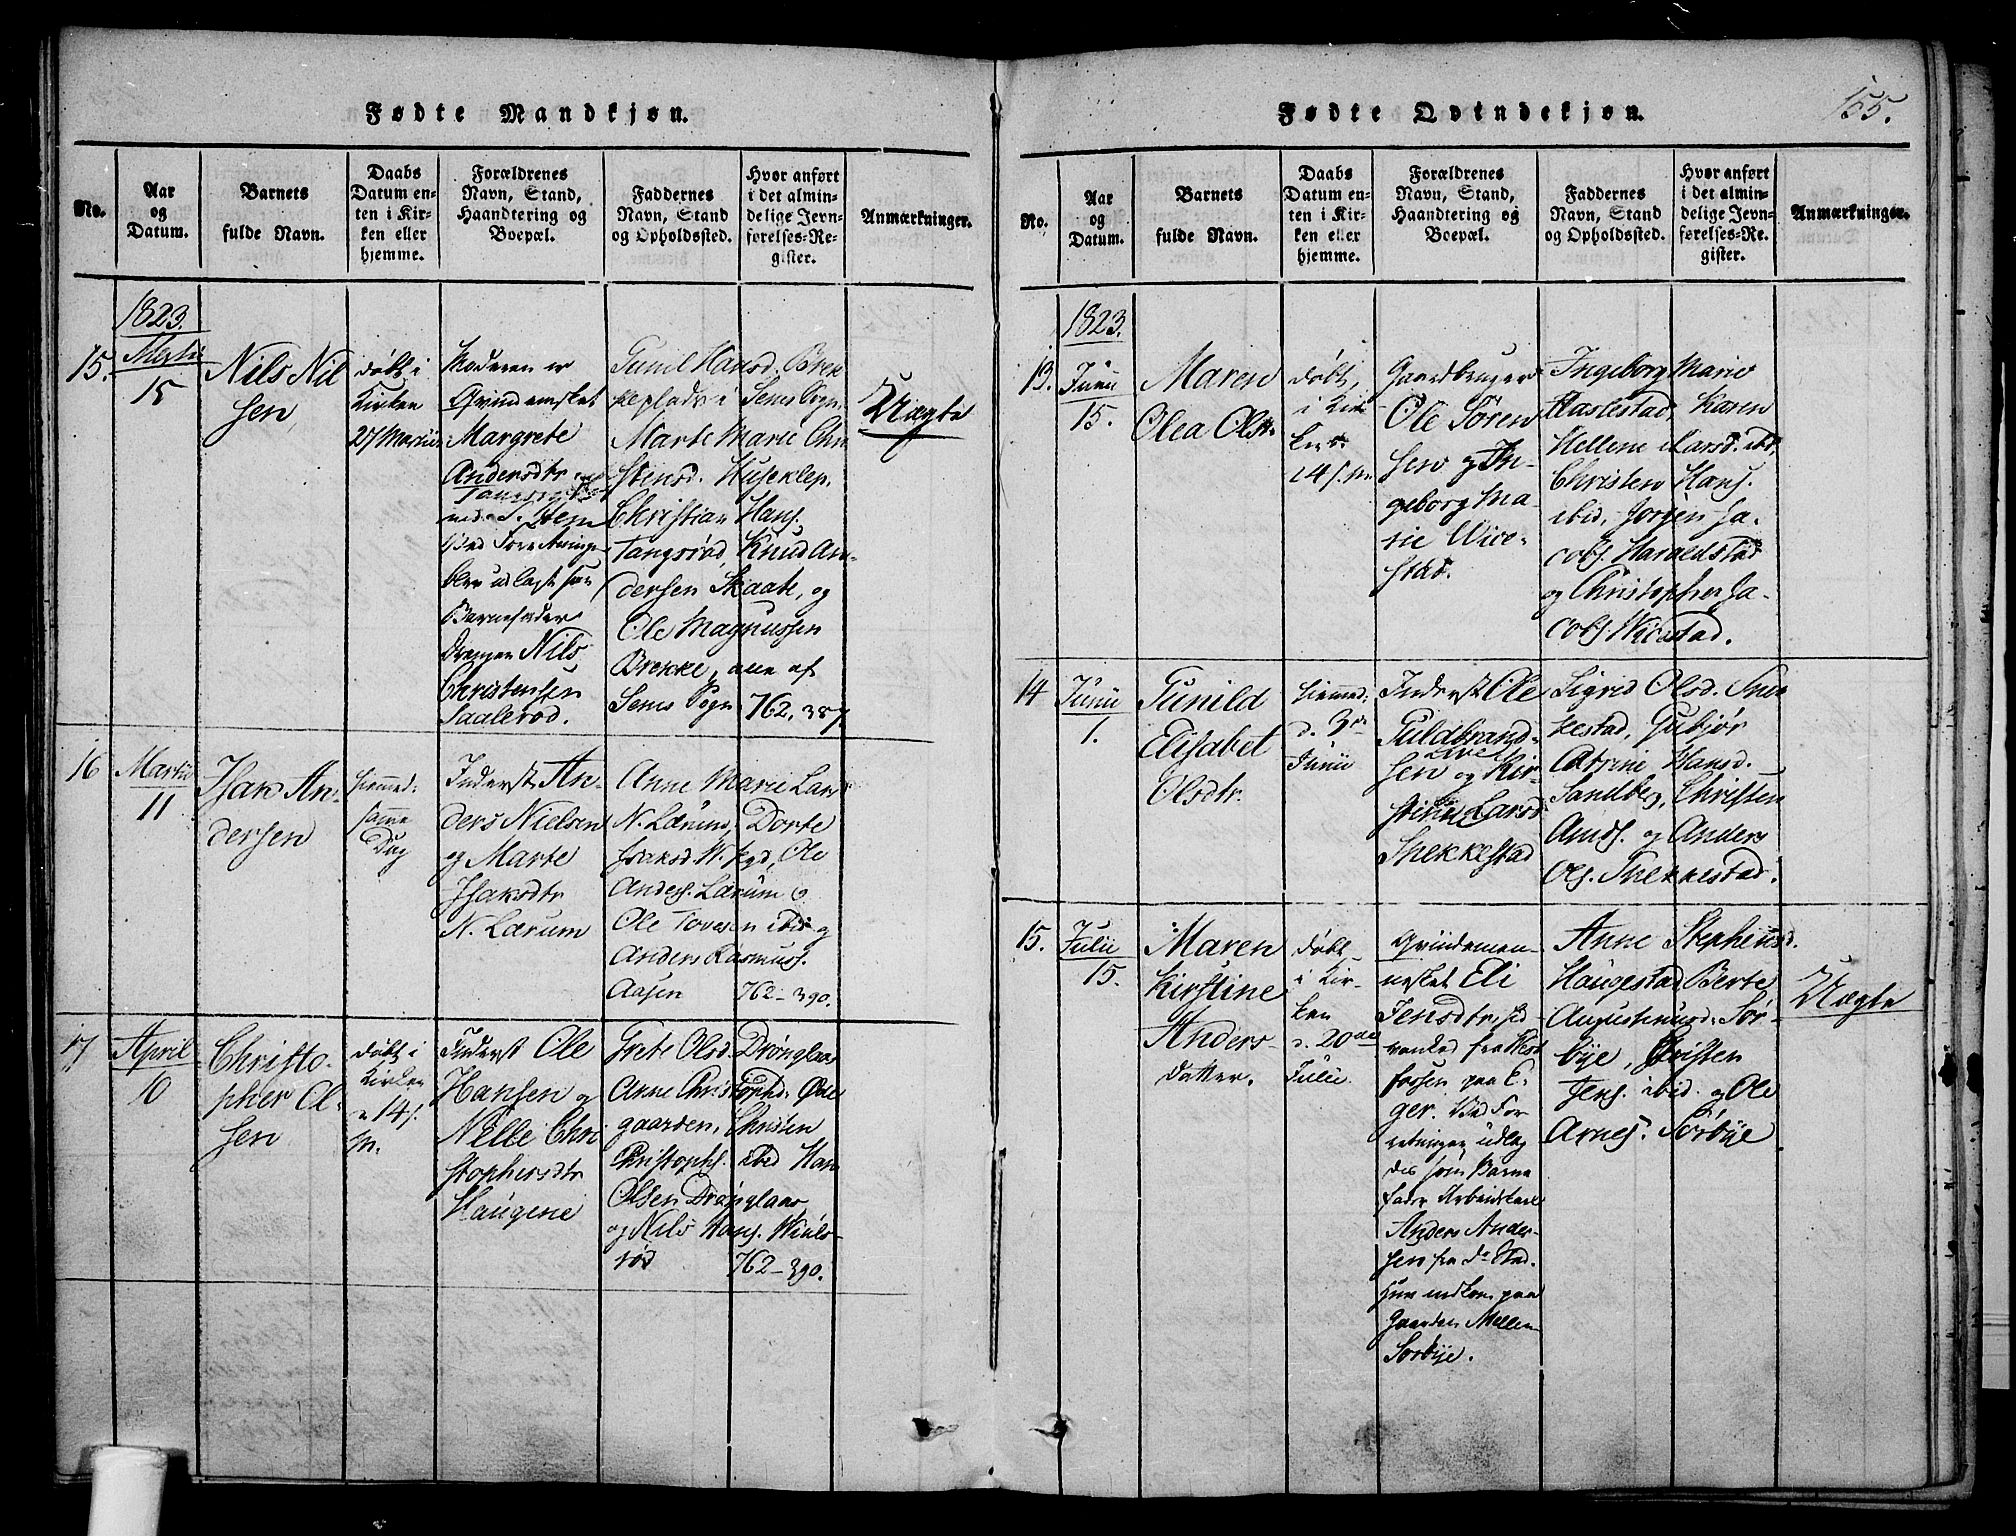 Fødte Mandkjøn.
No.
Aar
og
Datum.
Barnets
fulde Navn.
Daabs
Datum en-
ten i Kir-
ken eller
hjemme.
Forældrenes
Navn, Stand,
Haandtering og
Boepæl.
Faddernes
Navn, Stand
og Opholdssted.
Hvor anført
i det almin-
delige Jevn-
førelses-Re-
gister.
Anmærkninger.
1823.
15.
Martii
15
Nils Nil
sen
døbt i
Kirken
27 Martii
Moderen er
Qvindemsket
Margrete
Andersdtr
ved Foretninge
blev udlagt som
Barnefader
Drengen Nils
Christensen
Saalerød.
Gunil Hansd. Brek
keplads i Sems Sogn.
Marte Marie Chri
stensd. Huseklep,
Christian Hans.
Tangsrød, Knud An-
dersen Skaate, og
Ole Magnussen
Brekke, alle af
Sems Sogn 762, 387
Uægte
16
Martii
11
Isak An-
dersen
hjemmed:
samme
Dag
Inderst An-
ders Nielsen
og Marte
Isaksdtr
N. Lærum
Anne Marie Lars
N. Lærum, Dorte
Isaksd. Ole
Anders. Lærum
Ole Tovesen ibid og
Anders Rasmuss.
Aasen 762-390.
17
April
10
Christo-
pher Ol-
sen
døbt i
Kirken
14 s.
M.
Inderst Ole
Hansen og
Nille Chri
stophersdtr
Haugene
Grete Olsd. Drønglaas
Anne Christophd: Øde
gaarden, Christen
Christophs. ibid Han
Olsen Drønglaas,
og Nils Hans.
rød 762-390.
Fødte Qvindekjøn.
155.
No.
Aar
og
Datum.
Barnets
fulde Navn.
Daabs
Datum en-
ten i Kir-
ken eller
hjemme.
Forældrenes
Navn, Stand,
Haandtering og
Boepæl.
Faddernes
Navn, Stand
og Opholdssted.
Hvor anført
i det almin-
delige Jevn-
førelses-Re-
gister.
Anmærkninger.
1823.
13.
Junii
15.
Maren
Olea Olsdtr
døbt,
i Kir
ken
Gaardbruger
Ole Søren
sen og In-
geborg Ma-
rie Wive-
stad.
Ingeborg Marie
Haslestad, Karen
Hellene Larsd. ibd,
Christen Hans.
ibid, Jørgen Ja-
cobs. Haraldstad
og Christopher Ja-
cobs. Wivestad.
14
Junii
1.
Gunild
Elisabet
Olsdtr.
hjemmed:
d. 3de
Junii
Inderst Ole
Guldbrand-
sen og Kir-
stine Larsd
Snekkestad
Sigrid Olsd. Snek
kestad, Gubjør
Catrine Hansd.
Sandberg, Christen
Amds. og Anders
Ols. Snekkestad.
15.
Julii
15.
Maren
Kirstine
Anders-
datter.
døbt
i Kir-
ken
d. 20de
Julii.
Qvindemen-
nesket Eli
Jensdtr.
fra West
fossen paa E-
ger. Ved For
retningen udlag
des som Barne
fader Arbeidskarl
Anders Ander-
sen fra Ds Sted.
paa
Gaarden Mellem
Sørbye.
Anne Stephensd.
Haugestad, Berte
Augustinusd: Sør-
bye, Christen
Jens. ibid. og Ole
Arnes. Sørbye
Uægte